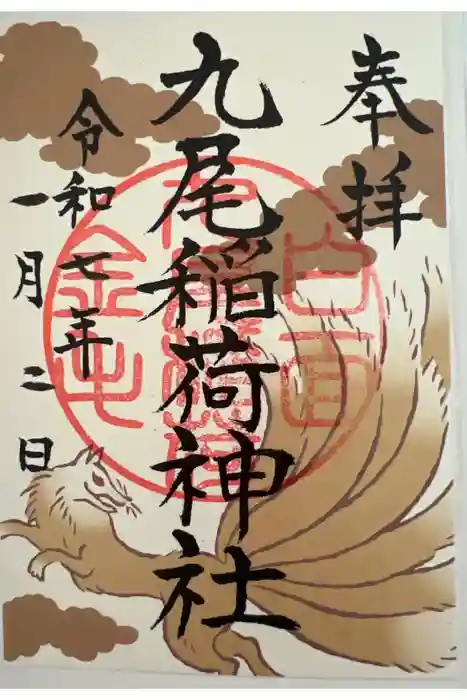 奉拝
九尾稲荷神社
令和七年
一月二日